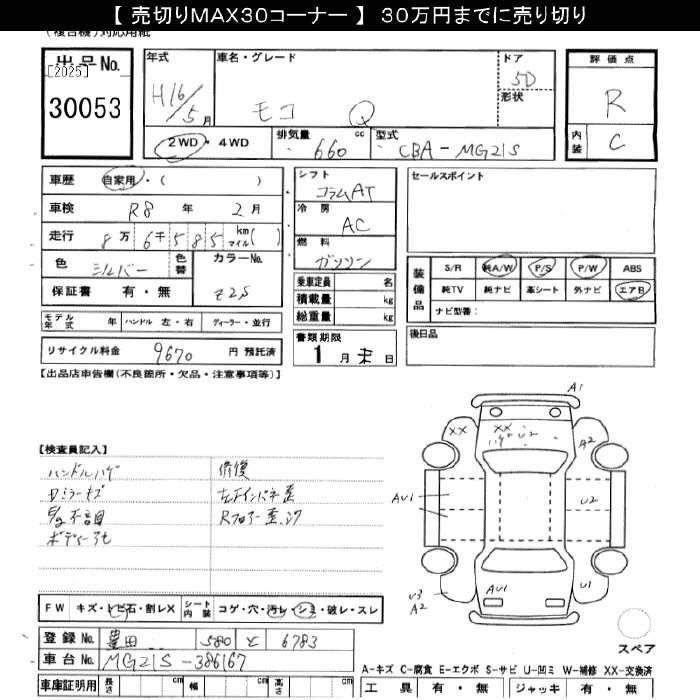 【 売切りMAX30コーナー 】 30万円までに売り切り
(複合機)対応用紙
出品No.
[2025]
30053
年式
H16/5月
車名・グレード
モコ Q
ドア
5D
形状
評価点
R
内装
C
2WD・4WD
排気量
660 cc
型式
CBA-MG21S
車歴 自家用・( )
車検 R8 年 2 月
走行 8万6千585 km マイル( )
色 シルバー
色替
カラーNo.
Z2S
保証書 有・無
モデル年式 年
ハンドル 左・右
ディーラー・並行
リサイクル料金 9670 円 預託済
シフト
コラムAT
冷房
AC
燃料
ガソリン
乗車定員 名
積載量 kg
総重量 kg
書類期限
1 月 末 日
セールスポイント
装備品
S/R 純A/W P/S P/W ABS
純TV 純ナビ 革シート 外ナビ エアB
ナビ型番:
後日品
【出品店申告欄(不良箇所・欠品・注意事項等)】
【検査員記入】
ハンドルハゲ
Dミラーキズ
ボディーアセ
修復
左Fインパネ歪
Rフロアー歪、
A1
XX
XX
U2
A2
AU1
U2
U3
A2
AU1
U1
スペア
FW キズ・トビ石・割レX
シート内装 コゲ・穴・汚レ・シミ・破レ・スレ
登録No. 豊田 580 と 6783
車台No. MG21S-386167
A-キズ C-腐食 E-エクボ S-サビ U-凹ミ W-補修 XX-交換済
車庫証明用 長さ cm 幅 cm 高さ cm
工具 有・無 ジャッキ 有・無